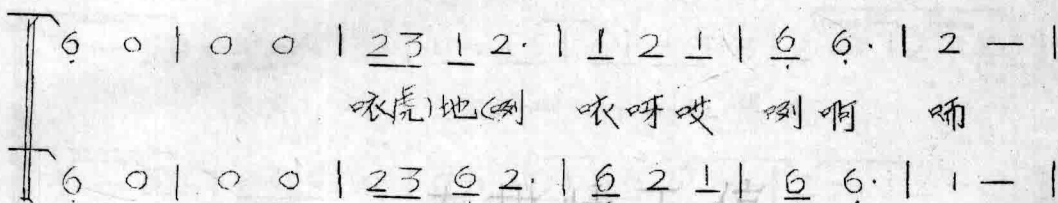 6̣ 0 | 0 0 | 2 3 1 2· | 1 2 1 | 6̣ 6̣· | 2 — |
咴虎)地(咧 咴呀哎 咧啊 嗬
6̣ 0 | 0 0 | 2 3 6̣ 2· | 6̣ 2 1 | 6̣ 6̣· | 1 — |